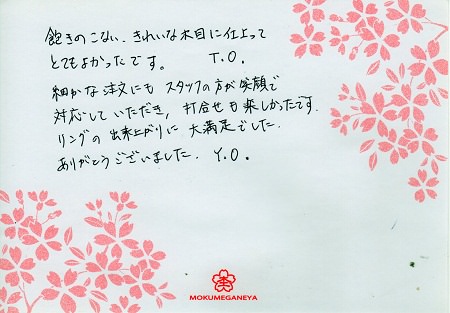 飽きのこない、きれいな木目に仕上って
とてもよかったです。 T.O.
細かな注文にも スタッフの方が笑顔で
対応して いただき, 打合せも楽しかったです.
リングの 出来上がりに 大満足でした.
ありがとうございました. Y.O.
MOKUMEGANEYA